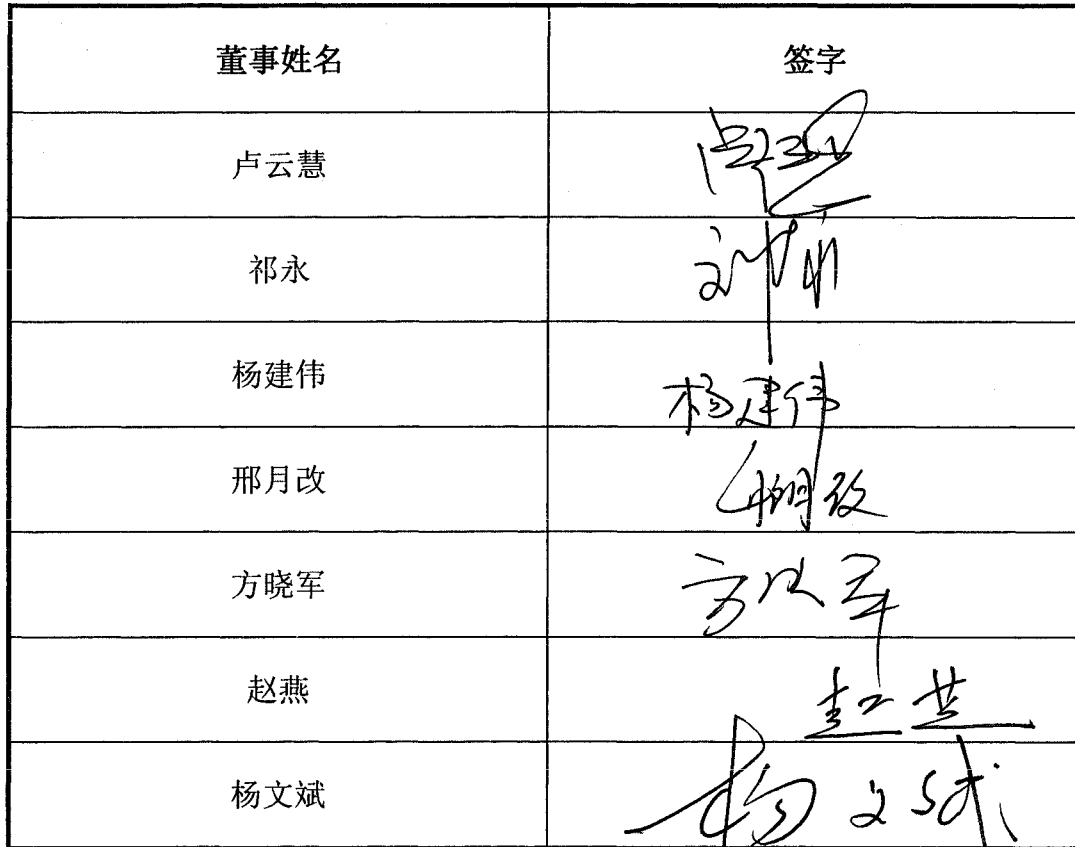 董事姓名 签字
卢云慧
祁永
杨建伟 杨建伟
邢月改
方晓军 方晓军
赵燕 赵燕
杨文斌 杨文斌